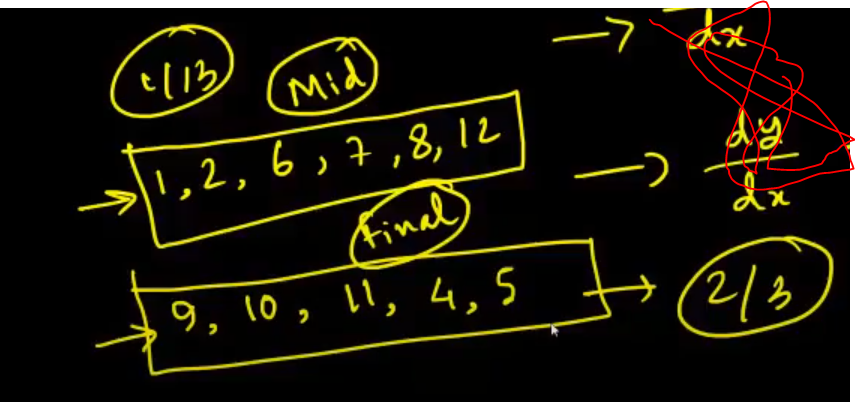 → dx
Mid
→ 1, 2, 6, 7, 8, 12 → dy/dx
Final
→ 9, 10, 11, 4, 5 → 2/3